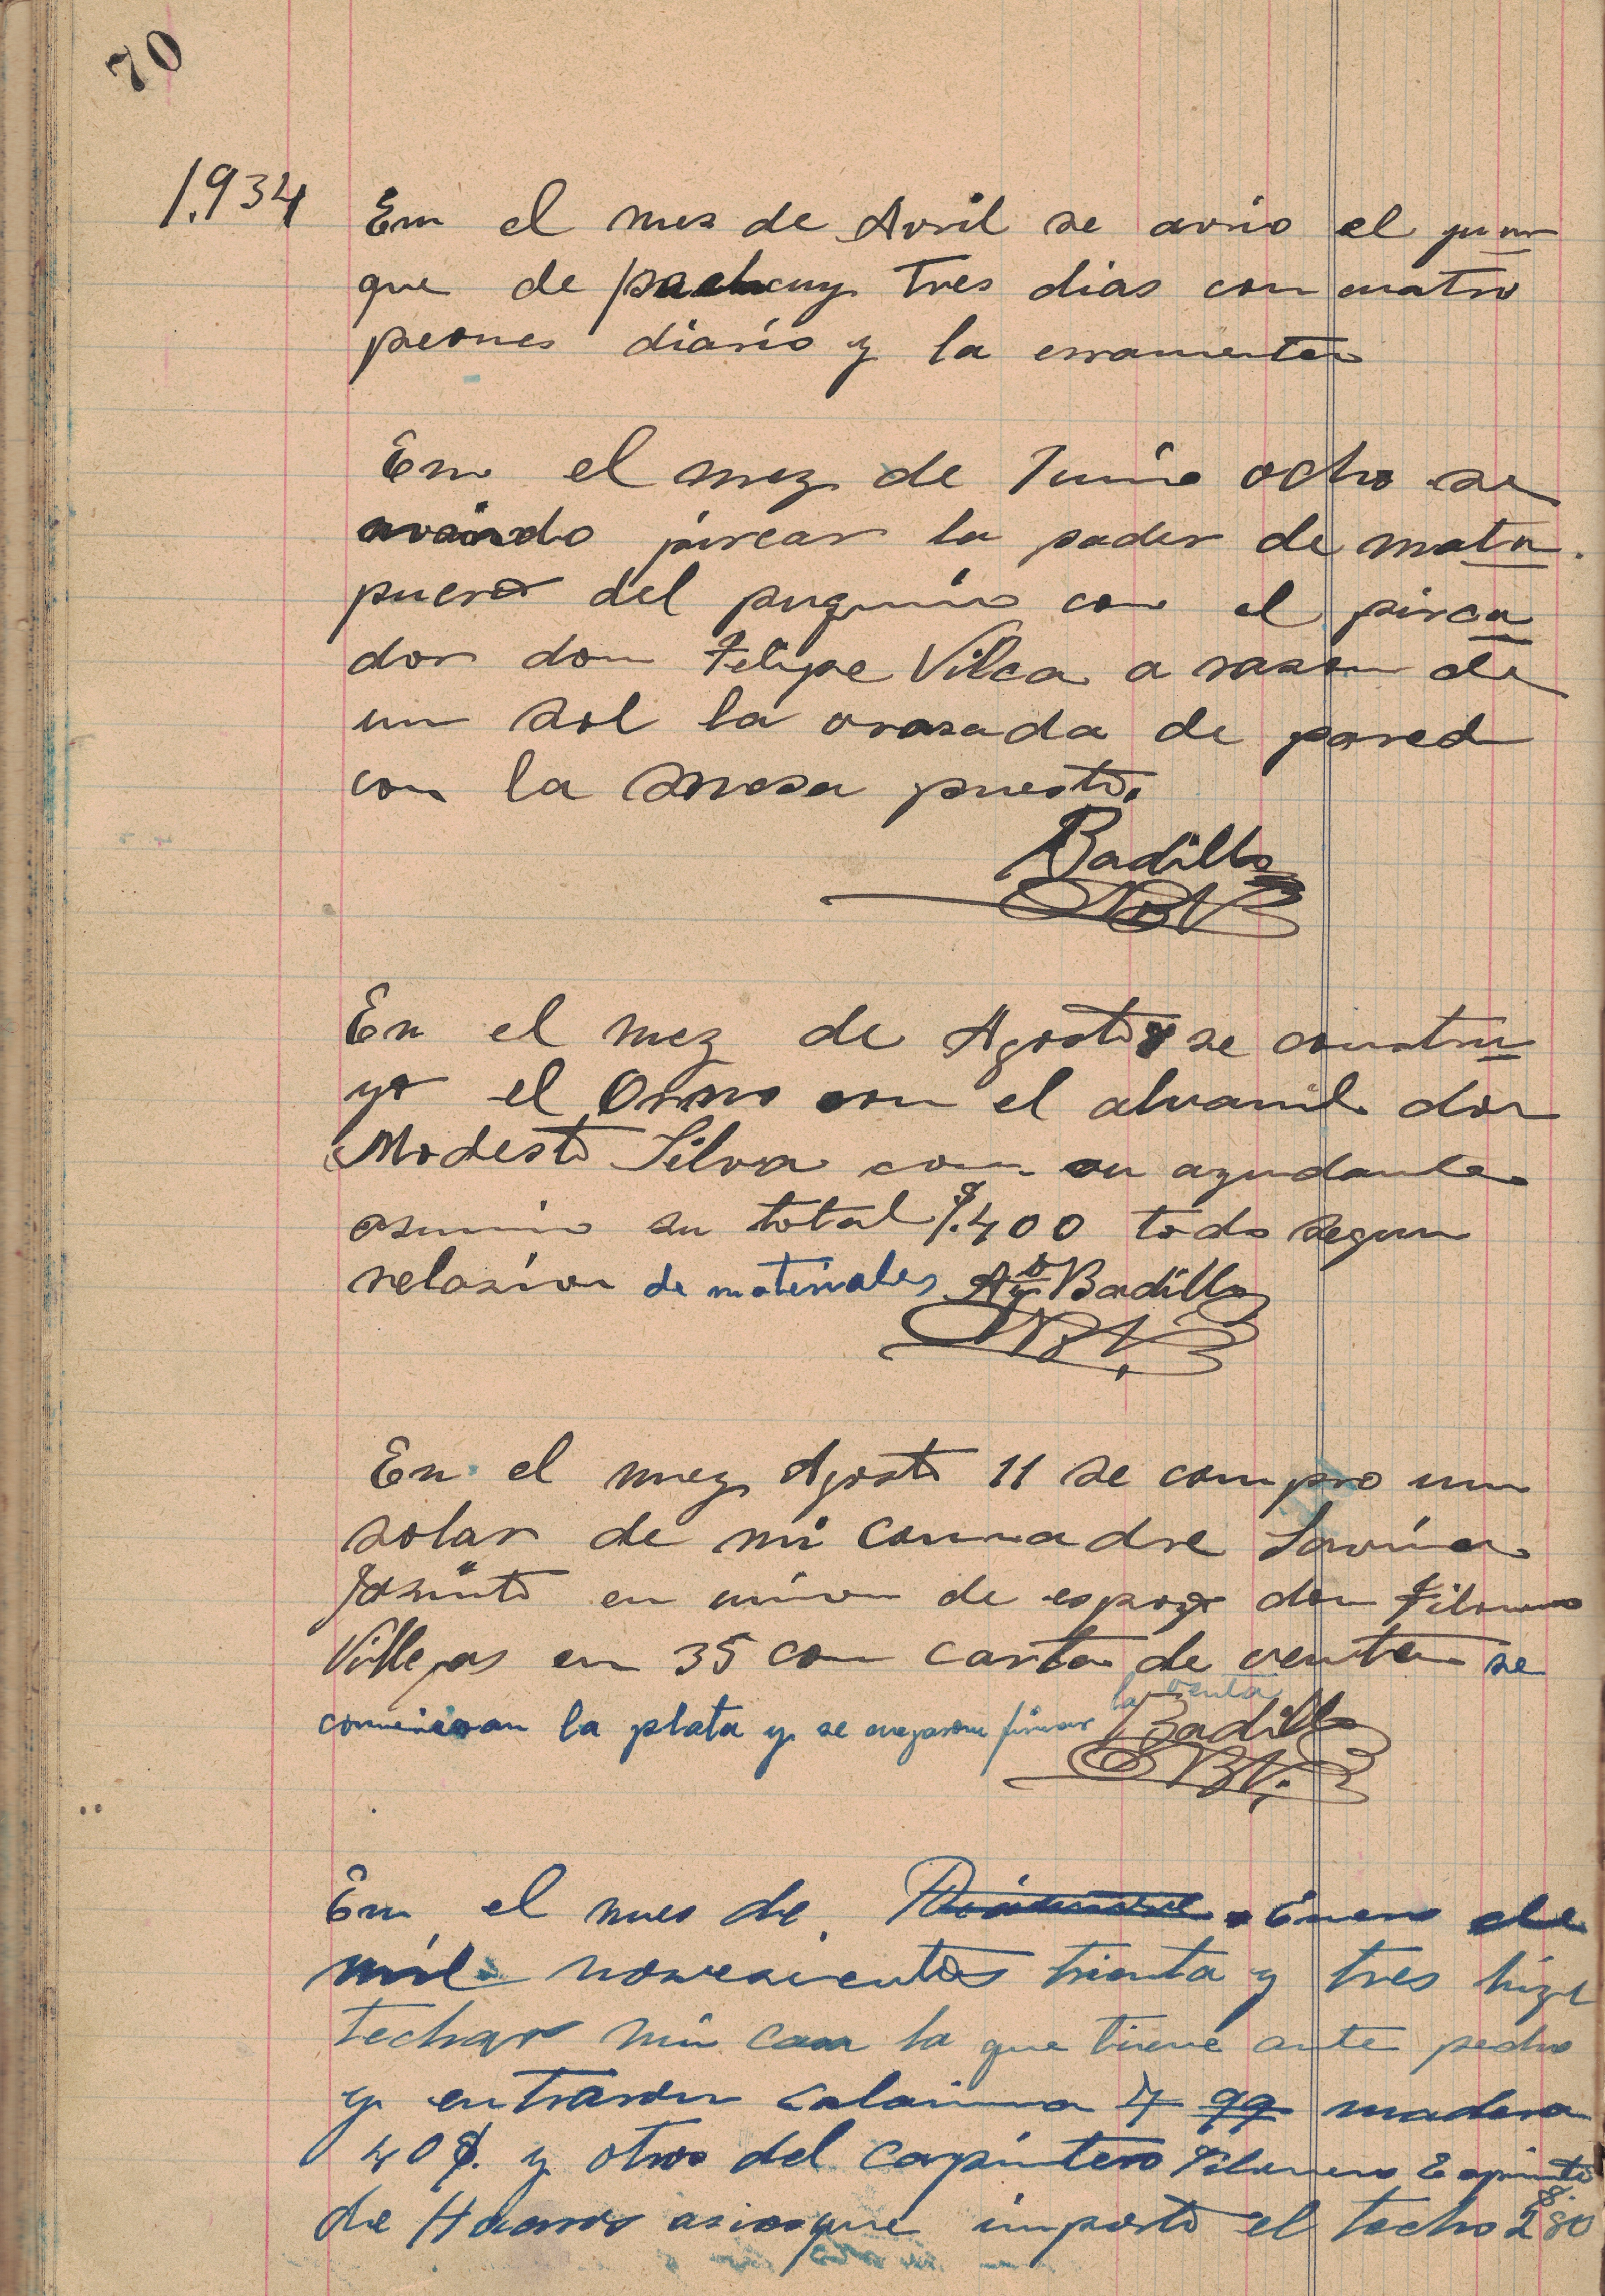 70
1.934 En el mes de Avril se avrio el puur
que de pachcuy tres dias con cuatro
peones diario y la erramenta
En el mez de Junio ocho se
mando pircar la pader de mata
puero del puquio con el pirca
dor don Felipe Vilca a rason de
un sol la brasada de pared
con la mesa puesto.
Badillo
En el mez de Agosto 8 se constru
yo el Orno con el alvanil don
Modesto Silva con su ayudante
asumio su total $.400 todo segun
relasion de materiales Ag.to Badillo
En el mez Agosto 11 se compro un
solar de mi commadre Savina
Jasinto en union de espozo don Filomeno
Villegas en 35 con carta de venta se
comieron la plata y se negaron firmar la venta
Badillo
En el mes de Enero de
mil novesientos trienta y tres hize
techar mi casa la que tiene ante pecho
y entraron calamina 4 qq madera
40 $. y otros del carpintero Filomeno Espinto
de Huaros asi es que importo el techo $ 280